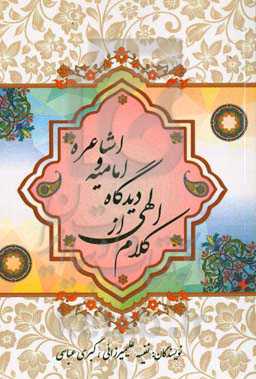 کلام الهی از
دیدگاه
امامیه و
اشاعره
نویسندگان: نفیسه علیمیرزائی، کبری عباسی